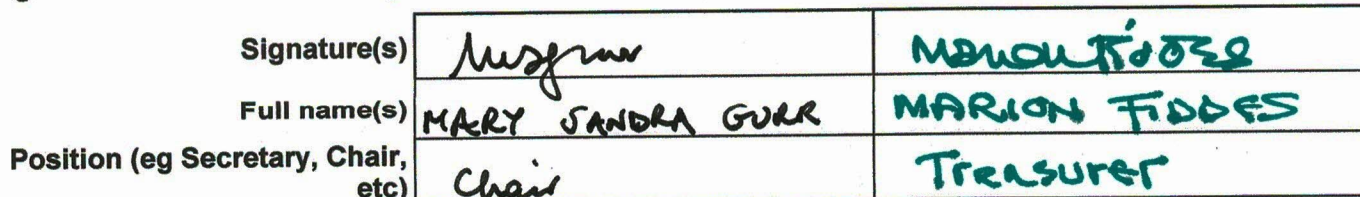 Signature(s) Marion Fiddes
Full name(s) MARY SANDRA GURR MARION FIDDES
Position (eg Secretary, Chair,
etc) Chair Treasurer